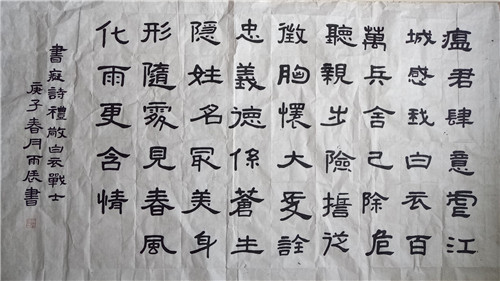 瘟君肆意虐江
城感我白衣百
萬兵舍己除危
聽親步險誓從
徵胸懷大愛詮
忠義德係蒼生
隱姓名最美身
形隨處見春風
化雨更含情
書疫詩禮敬白衣戰士
庚子春月雨書